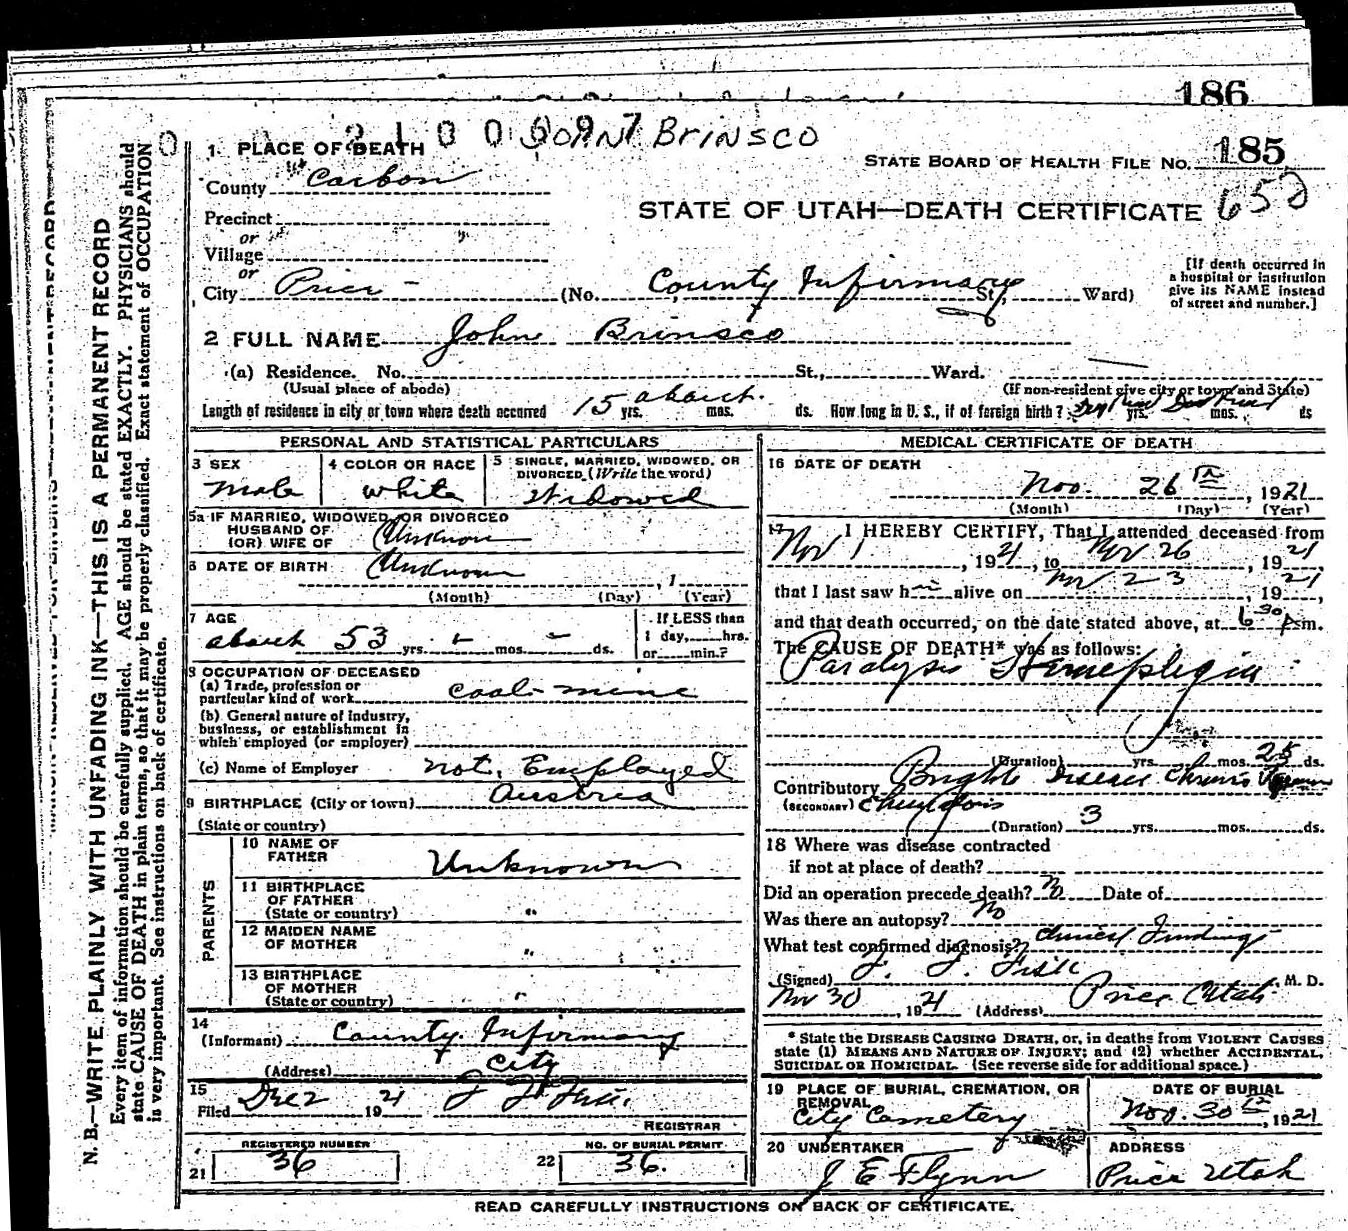 186
2100697 JOHN BRINSCO
1 PLACE OF DEATH
STATE BOARD OF HEALTH FILE No. 185
County Carbon
650
STATE OF UTAH—DEATH CERTIFICATE
Precinct
or
Village
or
City Price - (No. County Infirmary St. Ward)
[If death occurred in
a hospital or institution
give its NAME instead
of street and number.]
2 FULL NAME John Brinsco
(a) Residence. No. St., Ward.
(Usual place of abode) (If non-resident give city or town and State)
Length of residence in city or town where death occurred 15 yrs. about mos. ds. How long in U. S., if of foreign birth? yrs. mos. ds
PERSONAL AND STATISTICAL PARTICULARS
3 SEX
male
4 COLOR OR RACE
white
5 SINGLE, MARRIED, WIDOWED, OR
DIVORCED (Write the word)
Widowed
5a IF MARRIED, WIDOWED, OR DIVORCED
HUSBAND OF
(OR) WIFE OF Unknown
6 DATE OF BIRTH Unknown , 1
(Month) (Day) (Year)
7 AGE
about 53 yrs. - mos. - ds.
If LESS than
1 day, hrs.
or min.?
8 OCCUPATION OF DECEASED
(a) Trade, profession or
particular kind of work coal-mine
(b) General nature of industry,
business, or establishment in
which employed (or employer)
(c) Name of Employer not Employed
9 BIRTHPLACE (City or town) Austria
(State or country)
PARENTS
10 NAME OF
FATHER Unknown
11 BIRTHPLACE
OF FATHER
(State or country) "
12 MAIDEN NAME
OF MOTHER "
13 BIRTHPLACE
OF MOTHER
(State or country) "
14
(Informant) County Infirmary
(Address) City
15
Filed Dec 2 1921 J J Fisk
REGISTRAR
REGISTERED NUMBER
21 36
NO. OF BURIAL PERMIT
22 36.
MEDICAL CERTIFICATE OF DEATH
16 DATE OF DEATH
Nov. 26th, 1921
(Month) (Day) (Year)
17 I HEREBY CERTIFY, That I attended deceased from
Nov 1, 1921, to Nov 26, 1921
that I last saw him alive on Nov 23, 1921,
and that death occurred, on the date stated above, at 6 30 P m.
The CAUSE OF DEATH* was as follows:
Paralysis Hemeplegia
(Duration) yrs. mos. 25 ds.
Contributory Brights Disease Chronic
(SECONDARY)
(Duration) 3 yrs. mos. ds.
18 Where was disease contracted
if not at place of death?
Did an operation precede death? No Date of
Was there an autopsy? No
What test confirmed diagnosis? Clinical Findings
(Signed) J. J. Fisk M. D.
Nov 30, 1921 (Address) Price Utah
* State the DISEASE CAUSING DEATH, or, in deaths from VIOLENT CAUSES
state (1) MEANS AND NATURE OF INJURY; and (2) whether ACCIDENTAL,
SUICIDAL OR HOMICIDAL. (See reverse side for additional space.)
19 PLACE OF BURIAL, CREMATION, OR
REMOVAL
City Cemetery
DATE OF BURIAL
Nov. 30th, 1921
20 UNDERTAKER
J E Flynn
ADDRESS
Price Utah
READ CAREFULLY INSTRUCTIONS ON BACK OF CERTIFICATE.
N. B.—WRITE PLAINLY WITH UNFADING INK—THIS IS A PERMANENT RECORD
Every item of information should be carefully supplied. AGE should be stated EXACTLY. PHYSICIANS should
state CAUSE OF DEATH in plain terms, so that it may be properly classified. Exact statement of OCCUPATION
is very important. See instructions on back of certificate.